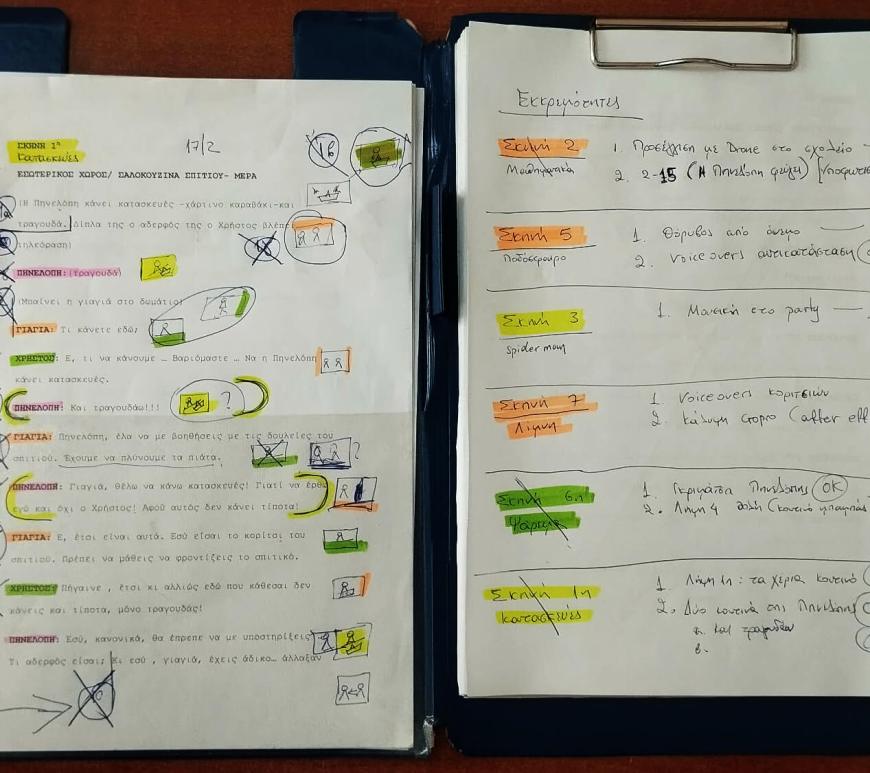 ΣΚΗΝΗ 1η
Κατασκευές
17/2
1β
ΕΣΩΤΕΡΙΚΟΣ ΧΩΡΟΣ/ ΣΑΛΟΚΟΥΖΙΝΑ ΣΠΙΤΙΟΥ- ΜΕΡΑ
(Η Πηνελόπη κάνει κατασκευές -χάρτινο καραβάκι-και
τραγουδά. Δίπλα της ο αδερφός της ο Χρήστος βλέπει
τηλεόραση)
ΠΗΝΕΛΟΠΗ:(τραγουδά)
(Μπαίνει η γιαγιά στο δωμάτιο)
ΓΙΑΓΙΑ: Τι κάνετε εδώ;
ΧΡΗΣΤΟΣ: Ε, τι να κάνουμε … Βαριόμαστε … Να η Πηνελόπη
κάνει κατασκευές.
ΠΗΝΕΛΟΠΗ: Και τραγουδάω!!!
?
ΓΙΑΓΙΑ: Πηνελόπη, έλα να με βοηθήσεις με τις δουλειές του
σπιτιού. Έχουμε να πλύνουμε τα πιάτα.
?
ΠΗΝΕΛΟΠΗ: Γιαγιά, θέλω να κάνω κατασκευές! Γιατί να έρθω
εγώ και όχι ο Χρήστος! Αφού αυτός δεν κάνει τίποτα!
ΓΙΑΓΙΑ: Ε, έτσι είναι αυτά. Εσύ είσαι το κορίτσι του
σπιτιού. Πρέπει να μάθεις να φροντίζεις το σπιτικό.
ΧΡΗΣΤΟΣ: Πήγαινε , έτσι κι αλλιώς εδώ που κάθεσαι δεν
κάνεις και τίποτα, μόνο τραγουδάς!
ΠΗΝΕΛΟΠΗ: Εσύ, κανονικά, θα έπρεπε να με υποστηρίξεις
Τι αδερφός είσαι; Κι εσύ , γιαγιά, έχεις άδικο… άλλαξαν
Εκκρεμότητες
Σκηνή 2
Μαθηματικά
1. Προσέγγιση με Drone στο σχολείο
2. 2-15 (Η Πηνελόπη φεύγει)
Σκηνή 5
Ποδόσφαιρο
1. Θόρυβος από άνεμο
2. Voice overs αντικατάσταση
Σκηνή 3
spiderman
1. Μουσική στο party
Σκηνή 7
Λίμνη
1. Voice overs κοριτσιών
2. κάλυψη (after eff
Σκηνή 6η
Ψάρεμα
1. Γκριμάτσα Πηνελόπης OK
2. Λήψη 4
Σκηνή 1η
κατασκευές
1. Λήψη 1η: τα χέρια κοντινό
2. Δύο κοντινά της Πηνελόπης
α. και τραγουδάω
β.